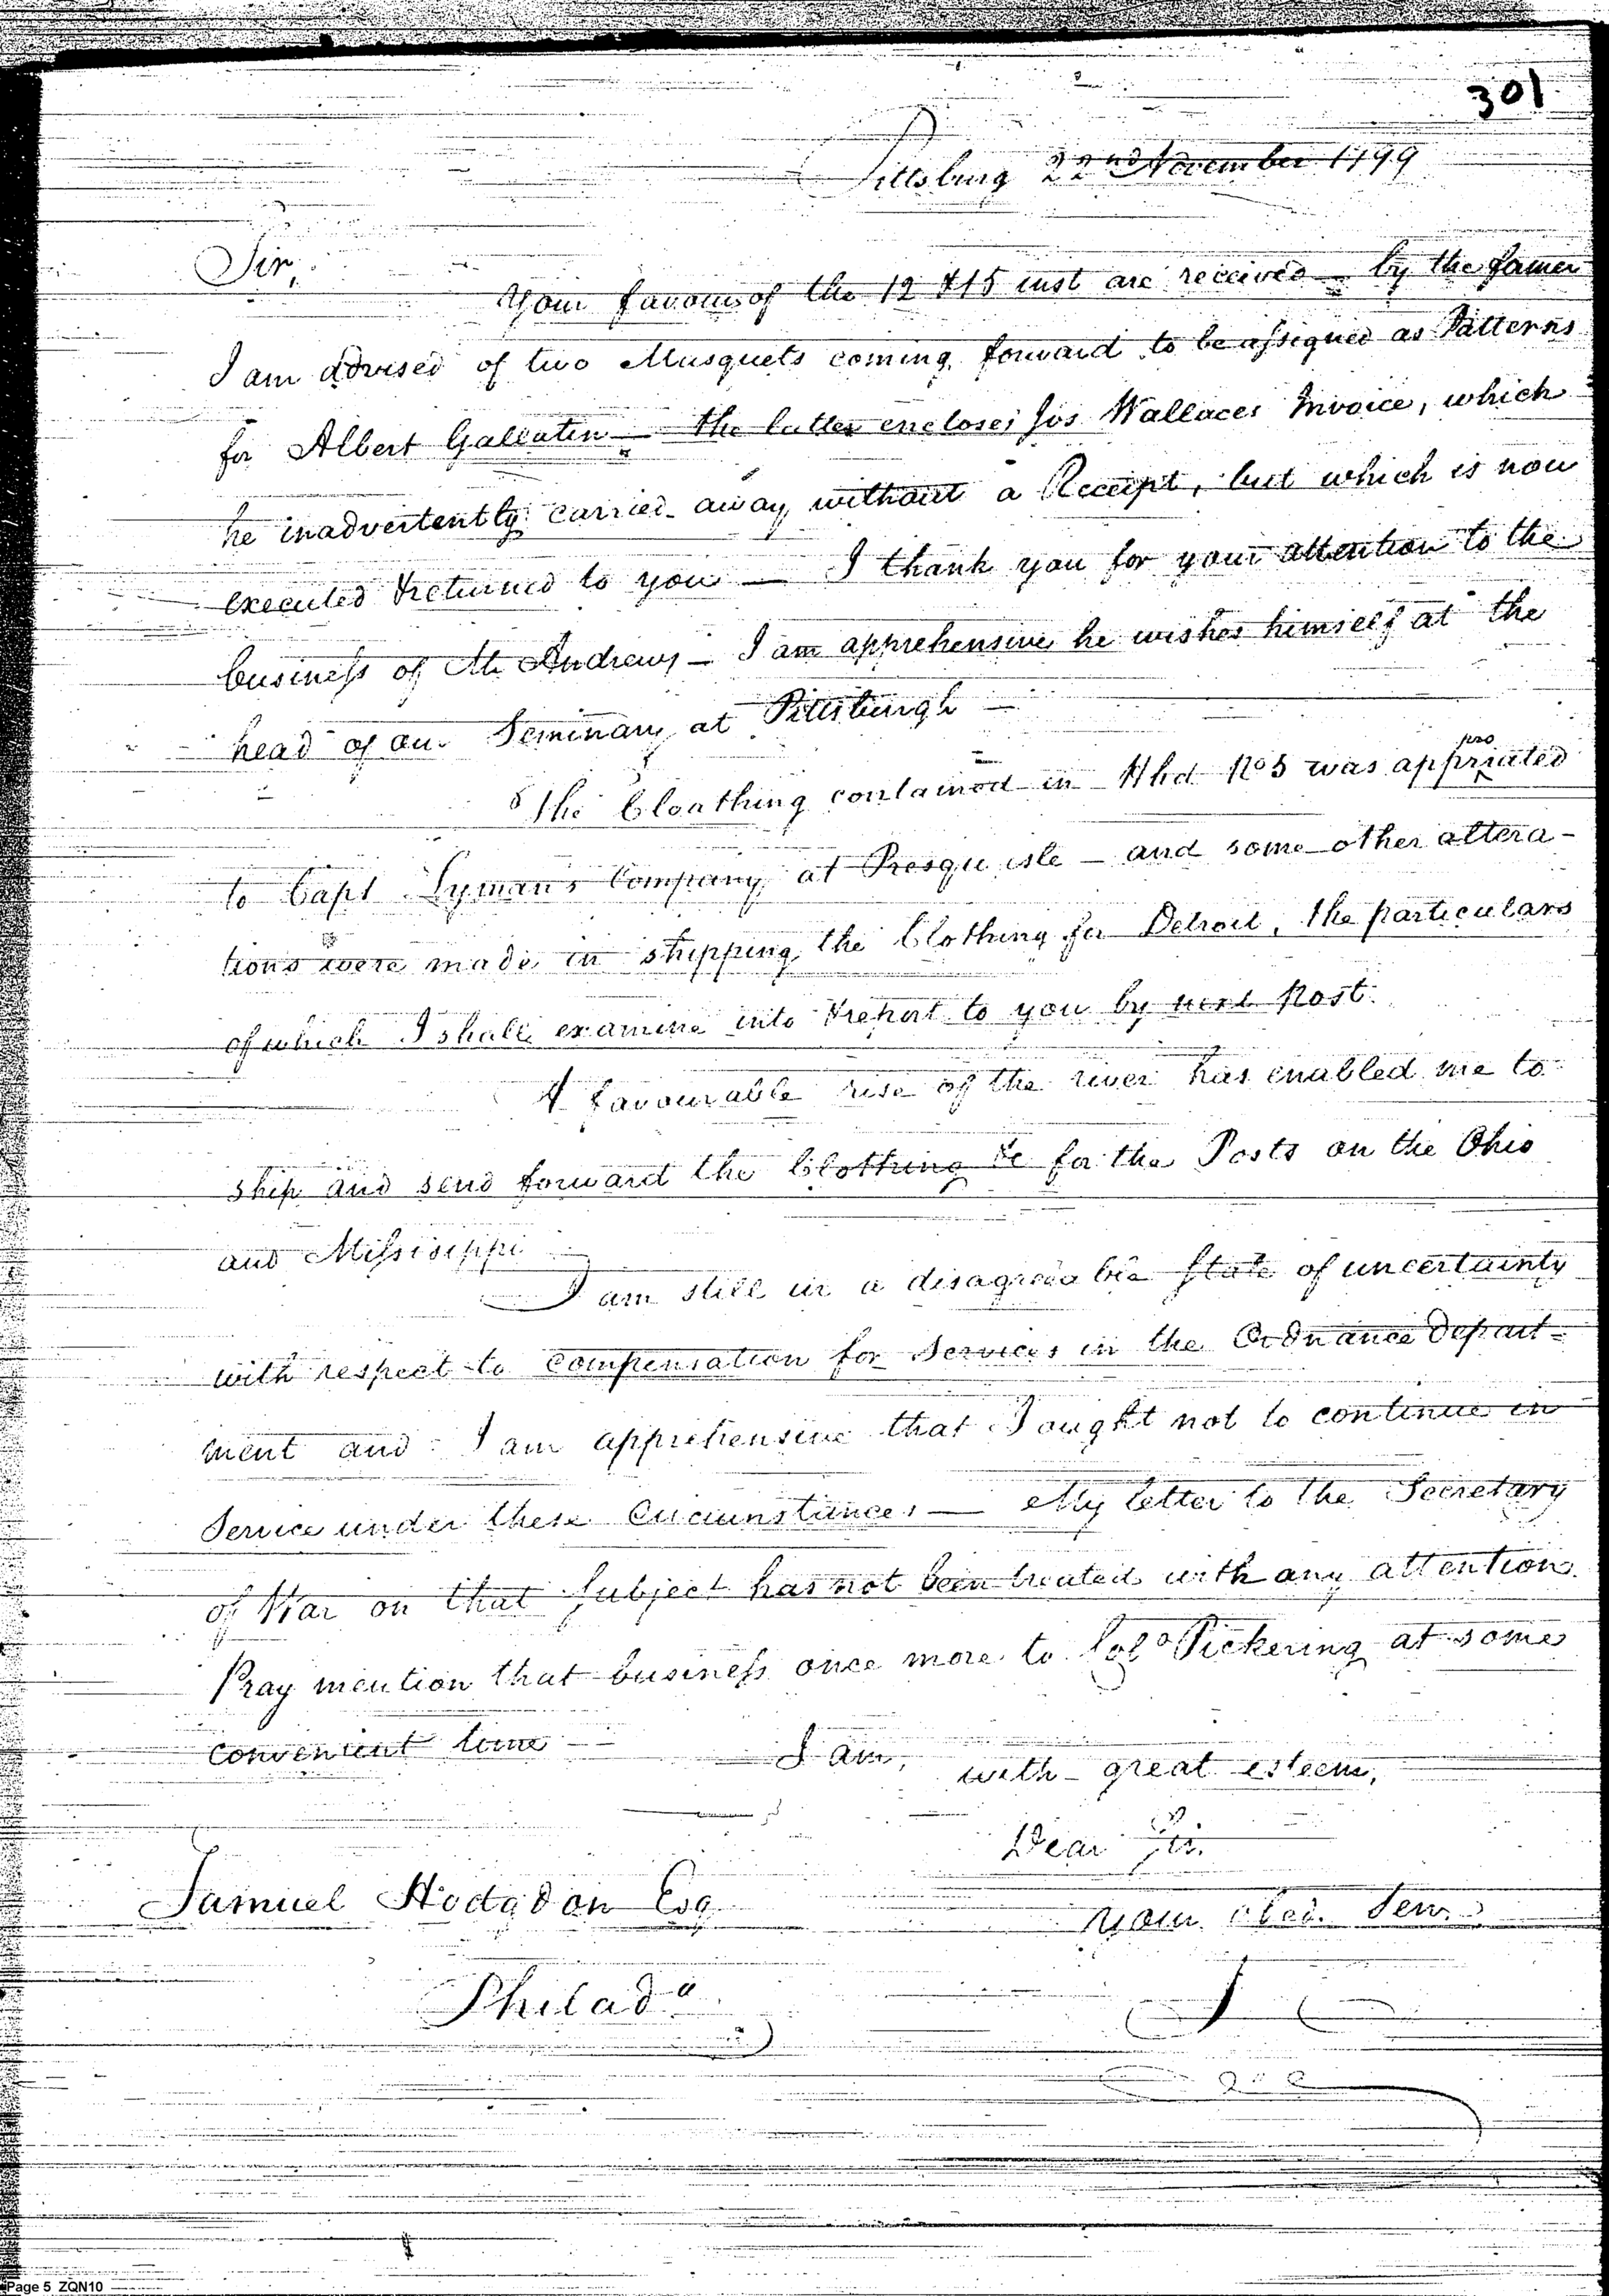 301
Pittsburg 22nd November 1799
Sir,
Your favours of the 12 & 15 inst are received — by the former
I am advised of two Musquets coming forward to be assigned as Patterns
for Albert Gallatin — the latter encloses Jos Wallaces Invoice, which
he inadvertently carried away without a Receipt, but which is now
executed & returned to you — I thank you for your attention to the
business of Mr Andrews — I am apprehensive he wishes himself at the
head of our Seminary at Pittsburgh —
The Cloathing contained in Hhd No 5 was appropriated
to Capt Lyman's Company at Presqu isle — and some other altera-
tions were made in shipping the Clothing for Detroit, the particulars
of which I shall examine into & report to you by next Post.
A favourable rise of the river has enabled me to
ship and send forward the Clothing &c for the Posts on the Ohio
and Missisippi
I am still in a disagreeable State of uncertainty
with respect to compensation for Services in the Ordnance Depart-
ment and I am apprehensive that I ought not to continue in
Service under these Circumstances — My letter to the Secretary
of War on that Subject has not been treated with any attention.
Pray mention that business once more to Colo Pickering at some
convenient time —
I am,
with great esteem,
Dear Sir.
Samuel Hodgdon Esq
your obed. Serv.
Philada
Page 5 ZQN10